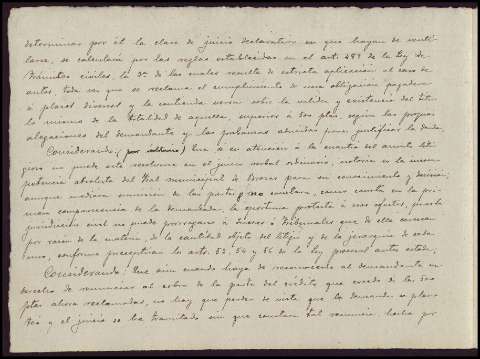 determinar por él la clase de juicio declarativo en que hayan de ventilarse, se calculará por las reglas establecidas en el art. 489 de la Ley de
trámites civiles, la 3ª de las cuales resulta de estricta aplicación al caso de
autos toda vez que se reclama el cumplimiento de una obligación pagadera
á plazos diversos y la contienda versa sobre la validez y existencia del título
lo mismo de la totalidad de aquella, superior á 500 ptas, según las propias
alegaciones del demandante y las probanzas aducidas para justificar la deuda.
Considerando, (por último) Que si en atención á la cuantía del asunto litigioso no puede este resolverse en el juicio verbal ordinario, notoria es la incompetencia absoluta del Tribal municipal de Brozas para su conocimiento y decisión;
aunque mediara sumisión de las partes y no constara, como consta en la primera comparecencia de la demandada, la oportuna protesta á sus efectos, pues la
jurisdicción civil no puede prorrogarse á Jueces ó Tribunales que de ella carezcan
por razón de la materia, de la cantidad objeto del litigio y de la jerarquía de cada
uno, conforme preceptúan los arts. 53, 54 y 56 de la ley procesal antes citada.
Considerando: Que aun cuando haya de reconocerse al demandante su
derecho de renunciar al cobro de la parte del crédito que exceda de las 500
ptas ahora reclamadas, no hay que perder de vista que la demanda se planteó y el juicio se ha tramitado sin que constara tal renuncia, hecha por